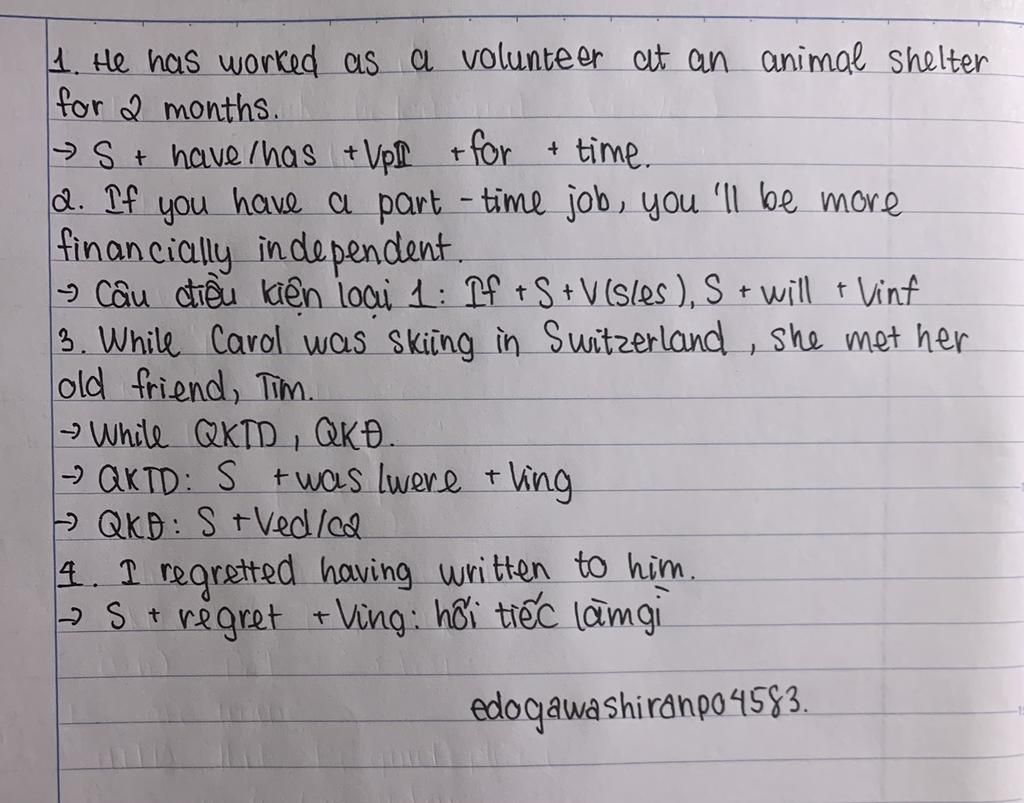 1. He has worked as a volunteer at an animal shelter
for 2 months.
→ S + have/has + VpII + for + time.
2. If you have a part - time job, you'll be more
financially independent.
→ Câu điều kiện loại 1: If + S + V(s/es), S + will + Vinf
3. While Carol was skiing in Switzerland, she met her
old friend, Tim.
→ While QKTD, QKĐ.
→ QKTD: S + was/were + Ving
→ QKĐ: S + Ved/c2
4. I regretted having written to him.
→ S + regret + Ving: hối tiếc làm gì
edogawashiranpo4583.